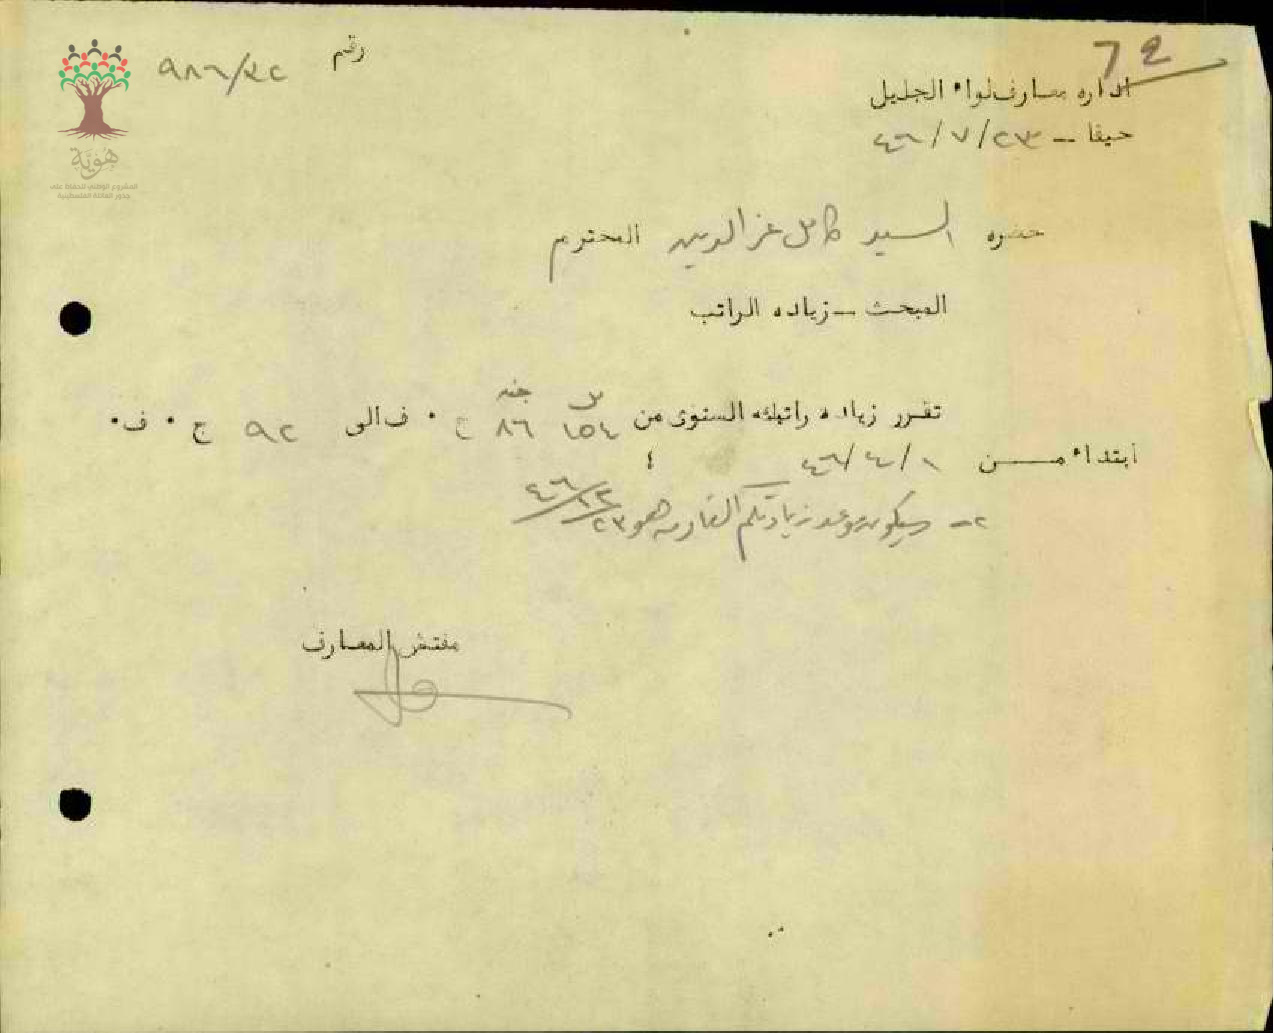 رقم ٩٨٦/٤٢
اداره معارف لواء الجليل
حيفا – ٢٣/٧/٤٦
هوية
المشروع الوطني للحفاظ على
جذور العائلة الفلسطينية
حضره السيد كامل عز الدين المحترم
المبحث – زياده الراتب
مل جنه
تقرر زياده راتبك السنوى من ١٥٤ ٨٦ ج ٠ ف الى ٩٢ ج ٠ ف٠
ابتداء من ١/٤/٤٦
٢- وسيكون موعد زيادتكم القادمه هو
مفتش المعارف